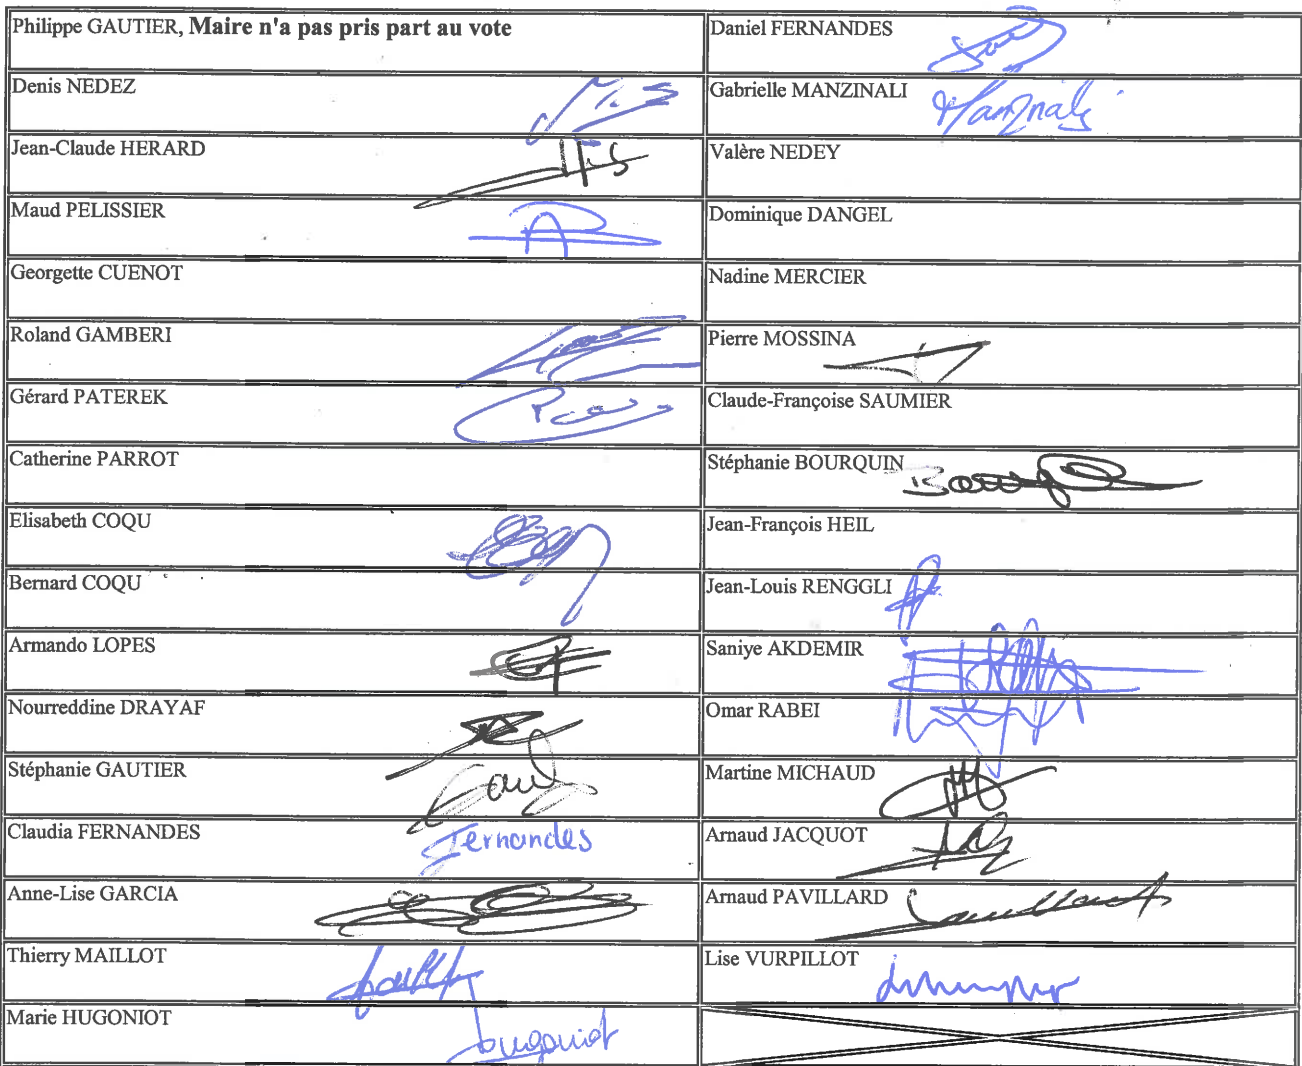 Philippe GAUTIER, Maire n'a pas pris part au vote
Daniel FERNANDES
Denis NEDEZ
Gabrielle MANZINALI
Manzinali
Jean-Claude HERARD
Valère NEDEY
Maud PELISSIER
Dominique DANGEL
Georgette CUENOT
Nadine MERCIER
Roland GAMBERI
Pierre MOSSINA
Gérard PATEREK
Claude-Françoise SAUMIER
Catherine PARROT
Stéphanie BOURQUIN
Elisabeth COQU
Jean-François HEIL
Bernard COQU
Jean-Louis RENGGLI
Armando LOPES
Saniye AKDEMIR
Nourreddine DRAYAF
Omar RABEI
Stéphanie GAUTIER
Martine MICHAUD
Claudia FERNANDES
Fernandes
Arnaud JACQUOT
Anne-Lise GARCIA
Arnaud PAVILLARD
Thierry MAILLOT
Lise VURPILLOT
Marie HUGONIOT
Hugoniot